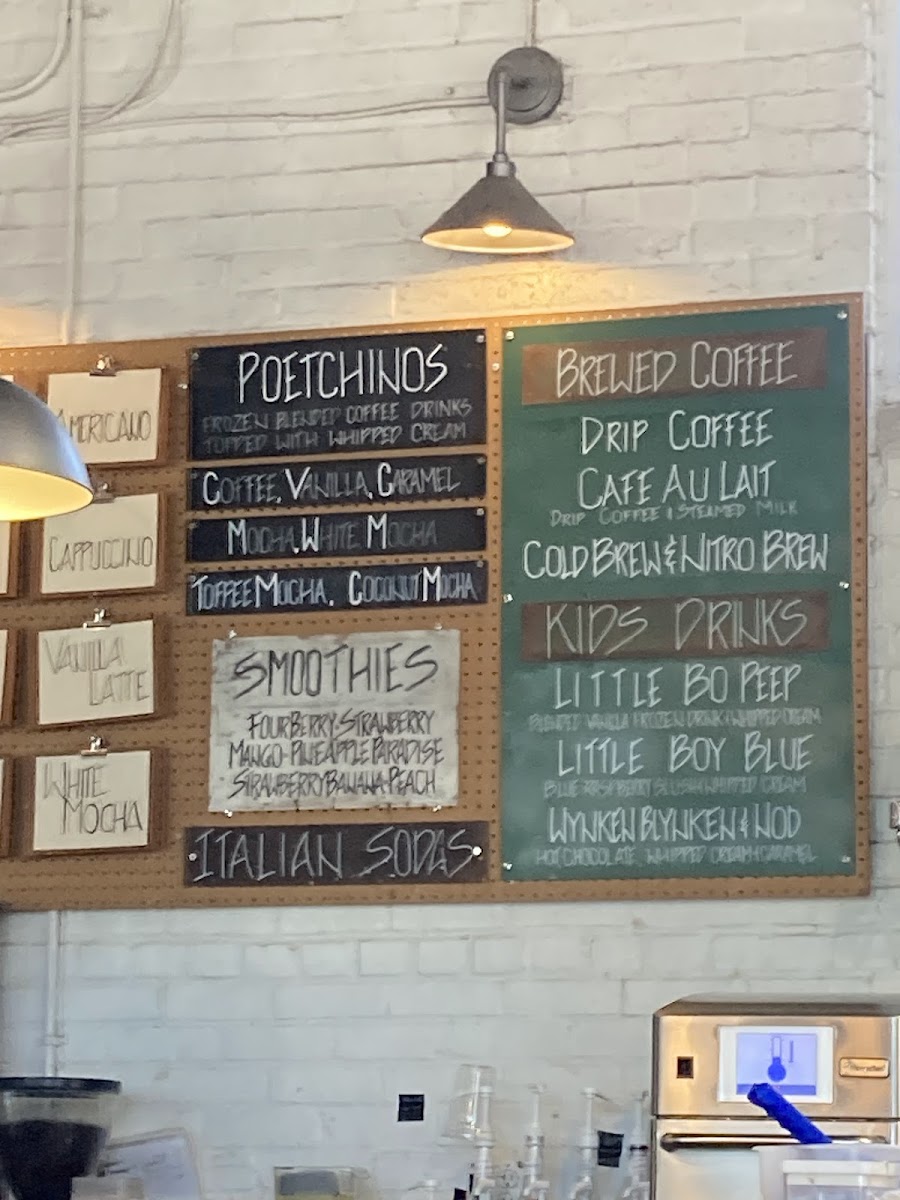 AMERICANO
CAPPUCCINO
VANILLA
LATTE
WHITE
MOCHA
POETCHINOS
FROZEN BLENDED COFFEE DRINKS
TOPPED WITH WHIPPED CREAM
COFFEE, VANILLA, CARAMEL
MOCHA, WHITE MOCHA
TOFFEE MOCHA, COCONUT MOCHA
SMOOTHIES
FOUR BERRY-STRAWBERRY
MANGO-PINEAPPLE PARADISE
STRAWBERRY BANANA-PEACH
ITALIAN SODAS
BREWED COFFEE
DRIP COFFEE
CAFE AU LAIT
DRIP COFFEE & STEAMED MILK
COLD BREW & NITRO BREW
KIDS DRINKS
LITTLE BO PEEP
BLENDED VANILLA FROZEN DRINK & WHIPPED CREAM
LITTLE BOY BLUE
BLUE RASPBERRY SLUSH & WHIPPED CREAM
WYNKEN BLYNKEN & NOD
HOT CHOCOLATE, WHIPPED CREAM & CARAMEL